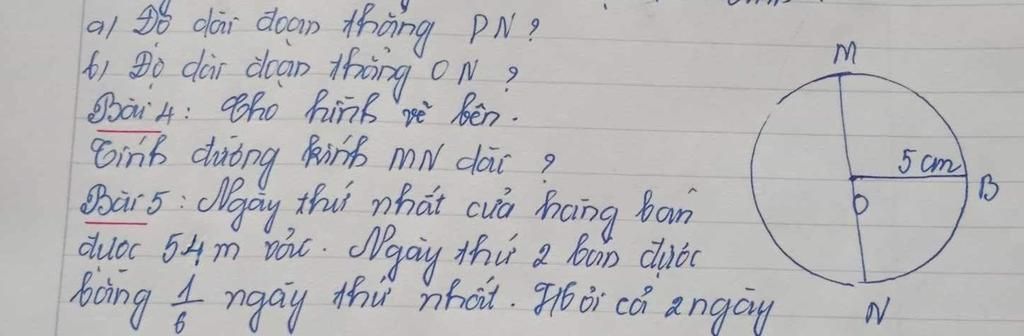 a) Độ dài đoạn thẳng PN?
b) Độ dài đoạn thẳng ON?
Bài 4: Cho hình vẽ bên.
Tính đường kính MN dài ?
Bài 5: Ngày thứ nhất cửa hàng bán
được 54 m vải. Ngày thứ 2 bán được
bằng 1/6 ngày thứ nhất. Hỏi cả 2 ngày
M
5 cm
B
O
N